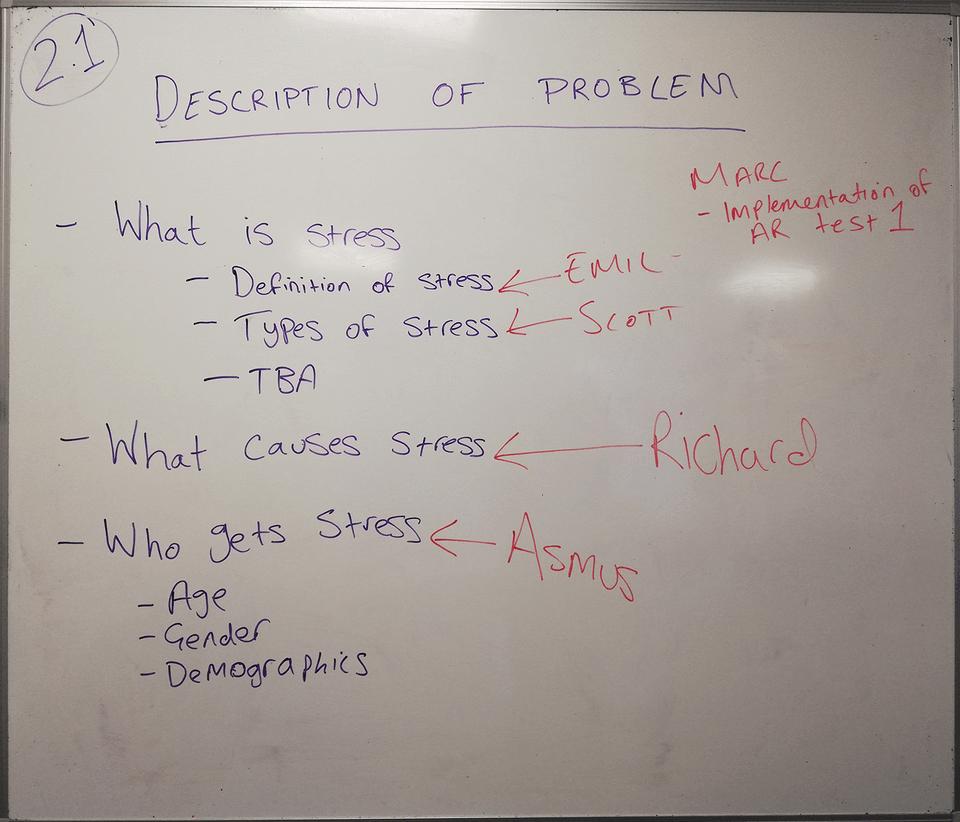 2.1
DESCRIPTION OF PROBLEM
MARC
- Implementation of
AR test 1
- What is stress
- Definition of stress ← EMIL
- Types of stress ← SCOTT
- TBA
- What causes stress ← Richard
- Who gets stress ← Asmus
- Age
- Gender
- Demographics